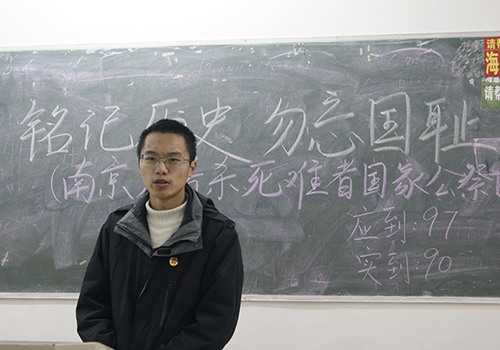 铭记历史 勿忘国耻
(南京 杀死难者国家公祭
应到:97
实到 90
请
海
请